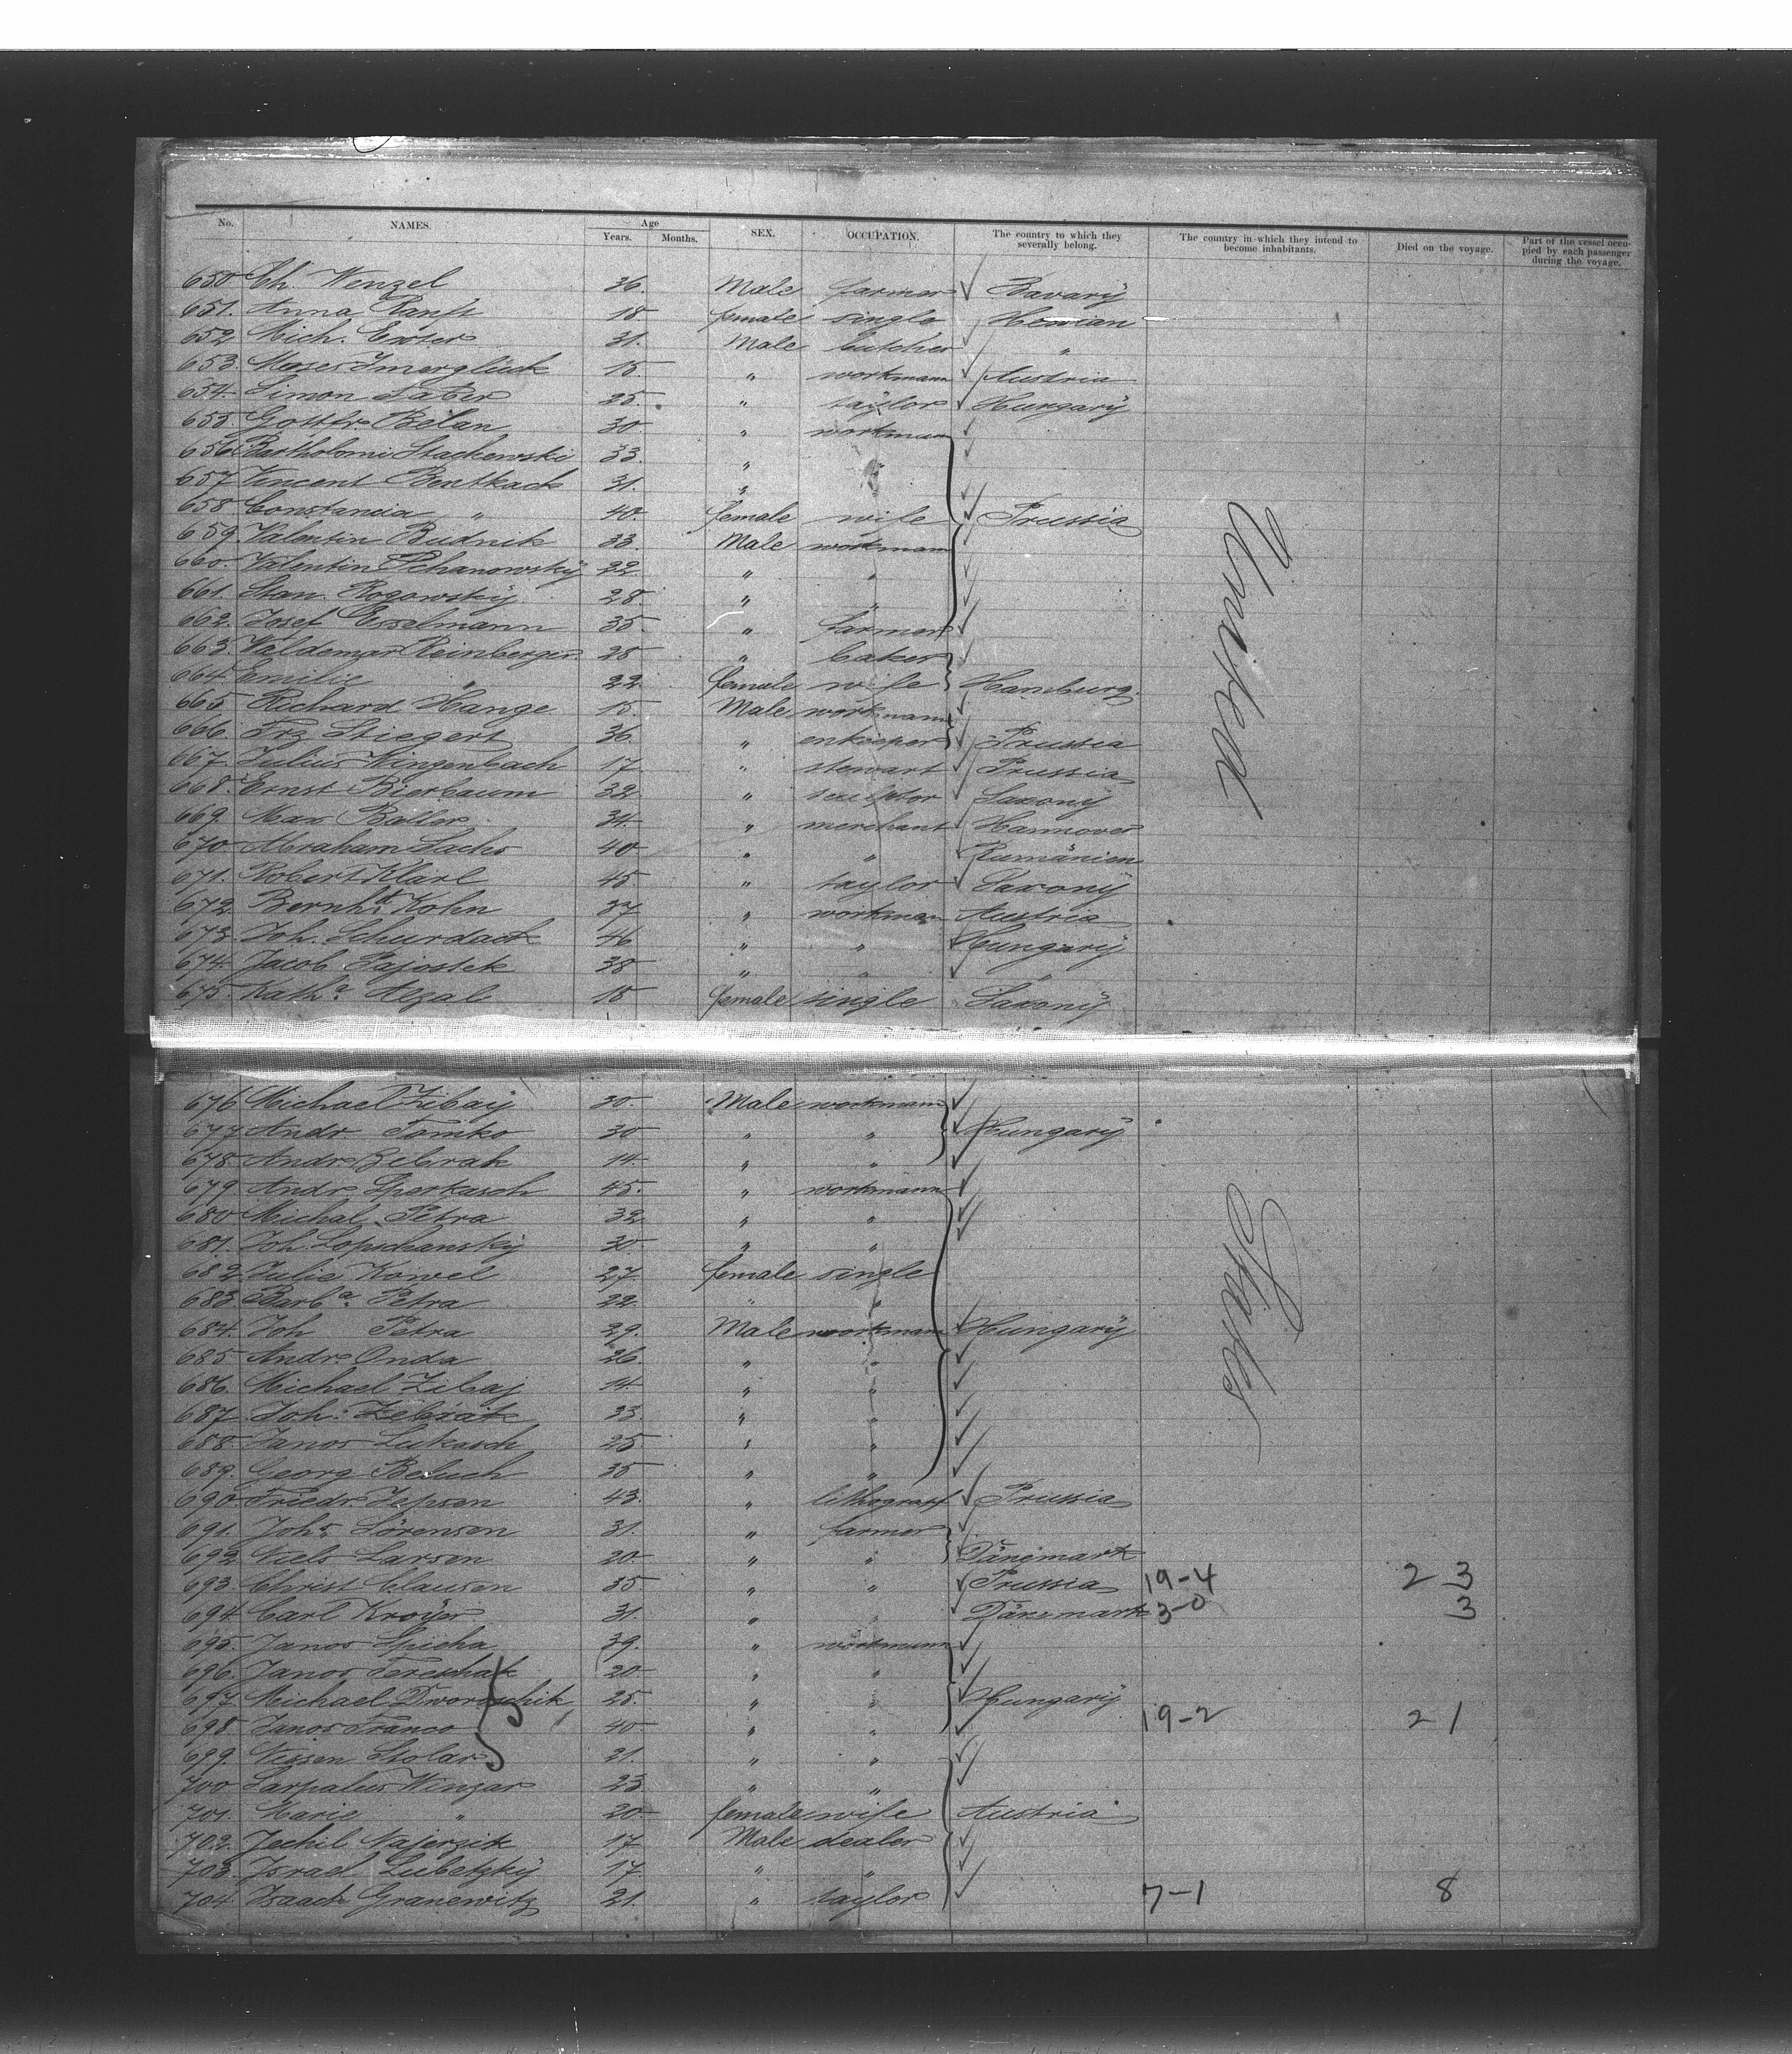 No. NAMES. Age SEX. OCCUPATION. The country to which they severally belong. The country in which they intend to become inhabitants. Died on the voyage. Part of the vessel occupied by each passenger during the voyage.
Years. Months.
650 Ch. Wenzel 36. Male farmer Bavarÿ
651. Anna Ranft 18 female single Hessian
652. Mich. Exter 31. Male butcher "
653. Moses Imerglück 15 " workmann Austria
654. Simon Faber 25. " taÿlor Hungarÿ
655. Gottfr. Belan 30 " workman
656. Bartholomi Stachewski 33 " "
657. Vincent Bentkack 31. " "
658 Constancia " 40. female wife Prussia
659. Valentin Budnik 33. Male workmann
660. Valentin Schanowskÿ 22. " "
661. Stan. Rogowskÿ 28. " "
662. Josef Esselmann 35 " farmer
663. Waldemar Reinberger 28 " baker
664. Emilie " 22 female wife Hamburg.
665 Richard Hange 15. Male workmann
666. Frz Stiegert 36. " enkieper Prussia
667. Julius Klingenbach 17 " stewart Prussia
668. Ernst Bierbaum 32 " sculptor Saxonÿ
669. Max Baller 34. " merchant Hannover
670 Abraham Sachs 40 " " Rumänien
671. Robert Klarl 45. " taylor Saxonÿ
672. Bernhd. Kohn 37 " workman Austria
673. Joh. Schurdack 46 " " Hungarÿ
674. Jacob Pajostek 38 " " "
675. Katha. Alzal 18 female single Saxonÿ
676 Michael Zibaÿ 30. Male workmann
677 Andr. Tomko 30 " " Hungarÿ
678. Andr. Zebrak 14. " "
679 Andr. Sperkasch 45. " workmann
680 Michal Petra 32 " "
681. Joh. Lopschanskÿ 30 " "
682. Julie Kowel 27 female single
683. Barba. Petra 22. " "
684. Joh Petra 29. Male workman Hungarÿ
685 Andr. Onda 26. " "
686. Michael Zibaj 14. " "
687. Joh. Zebrak 33. " "
688. Janos Lukasch 25 " "
689. Georg Beluch 35 " "
690 Friedr. Jepsen 43. " lithograf Prussia
691. Johs. Sörensen 31. " farmer
692 Niels Larsen 20. " " Dänemark
693. Christ Clausen 35 " " Prussia 19-4 2 3
694. Carl Kroÿer 31. " " Dänemark 3-0 3
695. Janos Spicha 39. " workmann
696. Janos Fereschak 20 " "
697. Michael Dworschik 25. " " Hungarÿ
698. Janos Franco 40 " " 19-2 2 1
699. Nissen Stolar 21. " "
700 Sarpalus Winzar 23 " "
701. Marie " 20. female wife Austria
702. Jechil Najerzik 17 Male dealer
703. Israel Lubetzkÿ 17 " "
704. Isaack Granewitz 21. " taylor 7-1 8
United
States